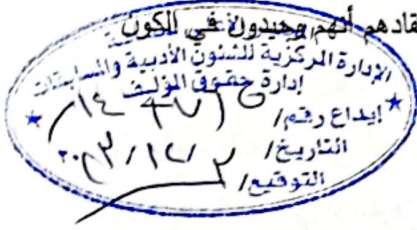 قادهم أنهم وحيدون في الكون
الإدارة المركزية للشئون الأدبية والمسابقات
إدارة حقوق المؤلف
إيداع رقم/
التاريخ/ ٢/١٢/٢٠٢٣
التوقيع/